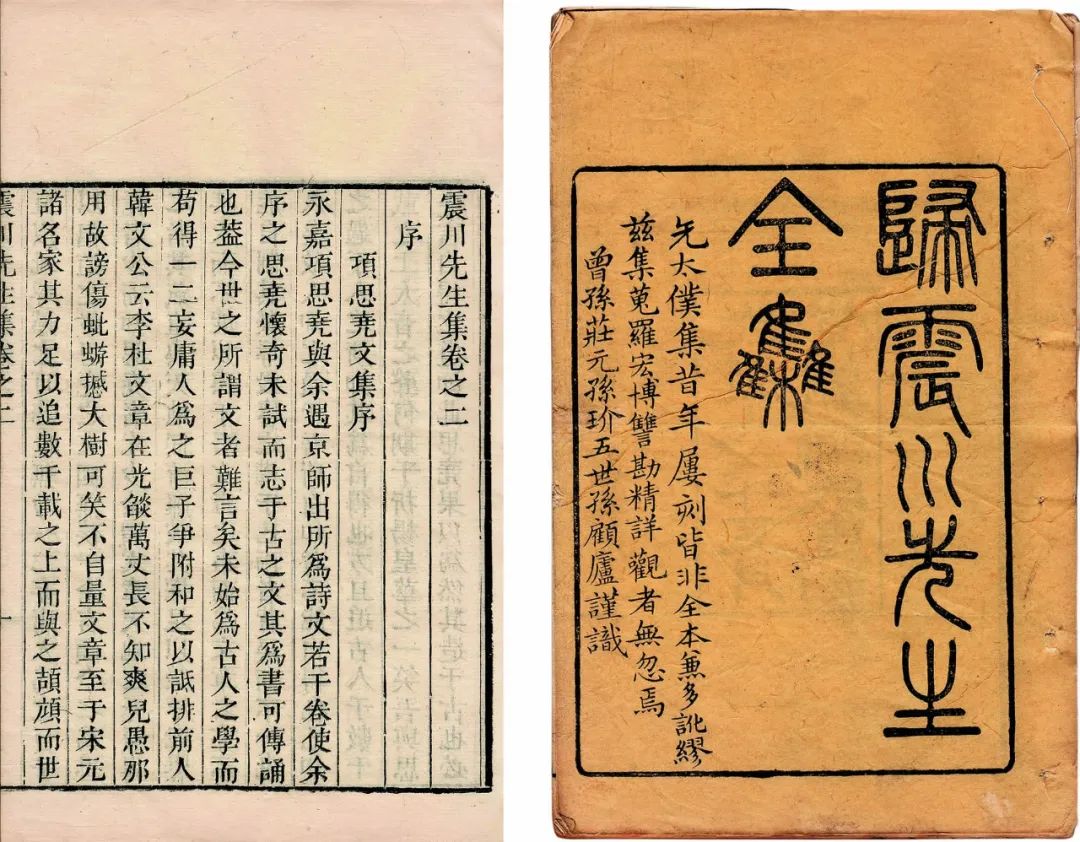 歸震川先生
全集
先太僕集昔年屢刻皆非全本兼多訛繆
茲集蒐羅宏博讐勘精詳觀者無忽焉
曾孫莊元孫玠五世孫顧廬謹識
震川先生集卷之二
序
項思堯文集序
永嘉項思堯與余遇京師出所爲詩文若干卷使余
序之思堯懷奇未試而志于古之文其爲書可傳誦
也葢今世之所謂文者難言矣未始爲古人之學而
苟得一二妄庸人爲之巨子爭附和之以詆排前人
韓文公云李杜文章在光燄萬丈長不知爽兒愚那
用故謗傷蚍蜉撼大樹可笑不自量文章至于宋元
諸名家其力足以追數千載之上而與之頡頏而世
震川先生集卷之二
一